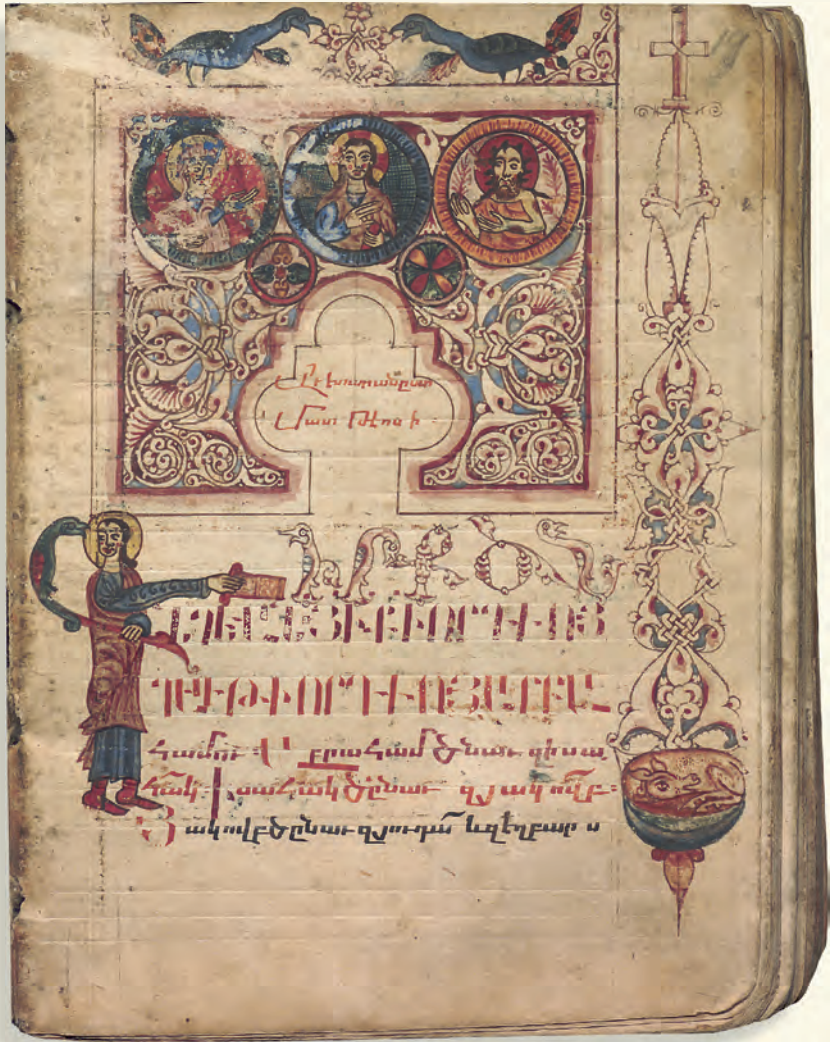 Աւետարան ըստ
Մատթէոսի
ԳԻՐՔ ԾՆ
ԴԵԱՆ ՅԻ ՔԻ ՈՐԴՒՈՅ
ԴԱՒԹԻ ՈՐԴՒՈՅ ԱԲՐԱ
համու. Աբրահամ ծնաւ զիսա
հակ. Իսահակ ծընաւ զյակովբ։
Յակովբ ծընաւ զյուդա և զեղբարս